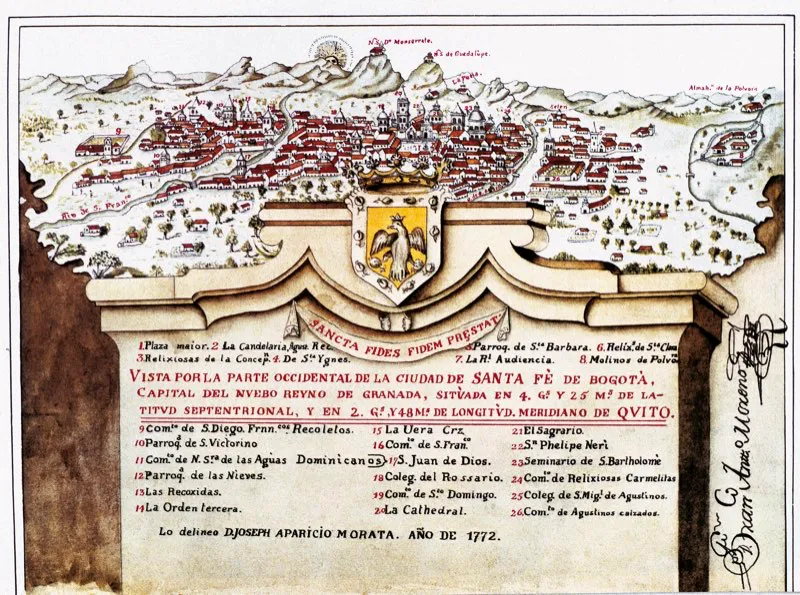 N.S. Dᵉ Monserrate.
N.S. de Guadalupe.
La Peña.
Almahⁿ. de la Polvora
Belen
Rio de S. Franᶜᵒ
SANCTA FIDES FIDEM PRESTAT.
1. Plaza maior. 2 La Candelaria, Agusᵗ. Rec
5. Parroq. de S.ᵗᵃ Barbara. 6. Relix.ˢ de S.ᵗᵃ Clara
3. Relixiosas de la Concep.ⁿ 4. De S.ᵗᵃ Ygnes.
7. La R.ˡ Audiencia. 8. Molinos de Polvᵒʳᵃ
VISTA POR LA PARTE OCCIDENTAL DE LA CIUDAD DE SANTA FÈ DE BOGOTÀ,
CAPITAL DEL NUEBO REYNO DE GRANADA, SITÙADA EN 4. Gˢ. Y 25 Mˢ. DE LA-
TITVD SEPTENTRIONAL, Y EN 2. Gˢ. Y 48 Mˢ. DE LONGITVD. MERIDIANO DE QVITO.
9 Com.ᵗᵒ de S. Diego. Frnn.ᶜᵒˢ Recoletos.
10 Parroq.ᵃ de S. Victorino
11 Com.ᵗᵒ de N. S.ʳᵃ de las Aguas Dominicanos
12 Parroq.ᵃ de las Nieves.
13 Las Recoxidas.
14 La Orden tercera.
15 La Uera Crz
16 Com.ᵗᵒ de S. Fran.ᶜᵒ
17 S. Juan de Dios.
18 Coleg. del Rossario.
19 Com.ᵗᵒ de S.ᵗᵒ Domingo.
20 La Cathedral.
21 El Sagrario.
22 S.ⁿ Phelipe Neri
23 Seminario de S. Bartholomè
24 Com.ᵗᵒ de Relixiosas Carmelitas
25 Coleg. de S. Mig.ˡ de Agustinos.
26. Com.ᵗᵒ de Agustinos calzados.
Lo delineo D. JOSEPH APARICIO MORATA. AÑO DE 1772.
Moreno